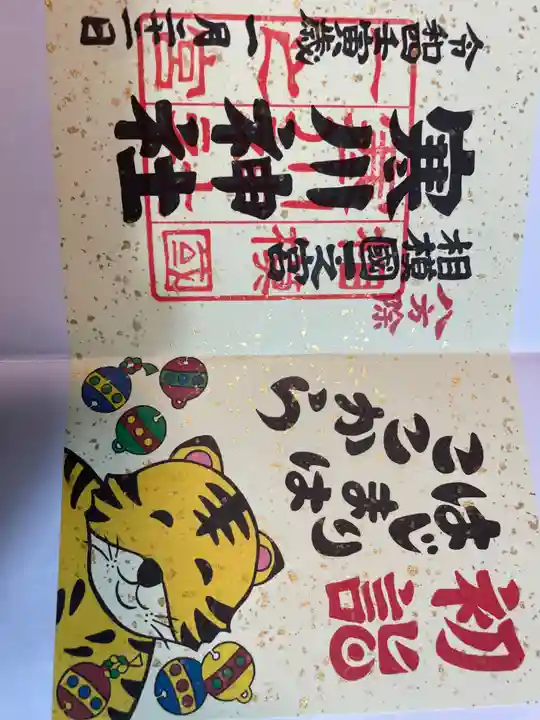 初詣
はじまりは
ここから
八方除
相模國一之宮
寒川神社
令和四壬寅歳
一月二十二日